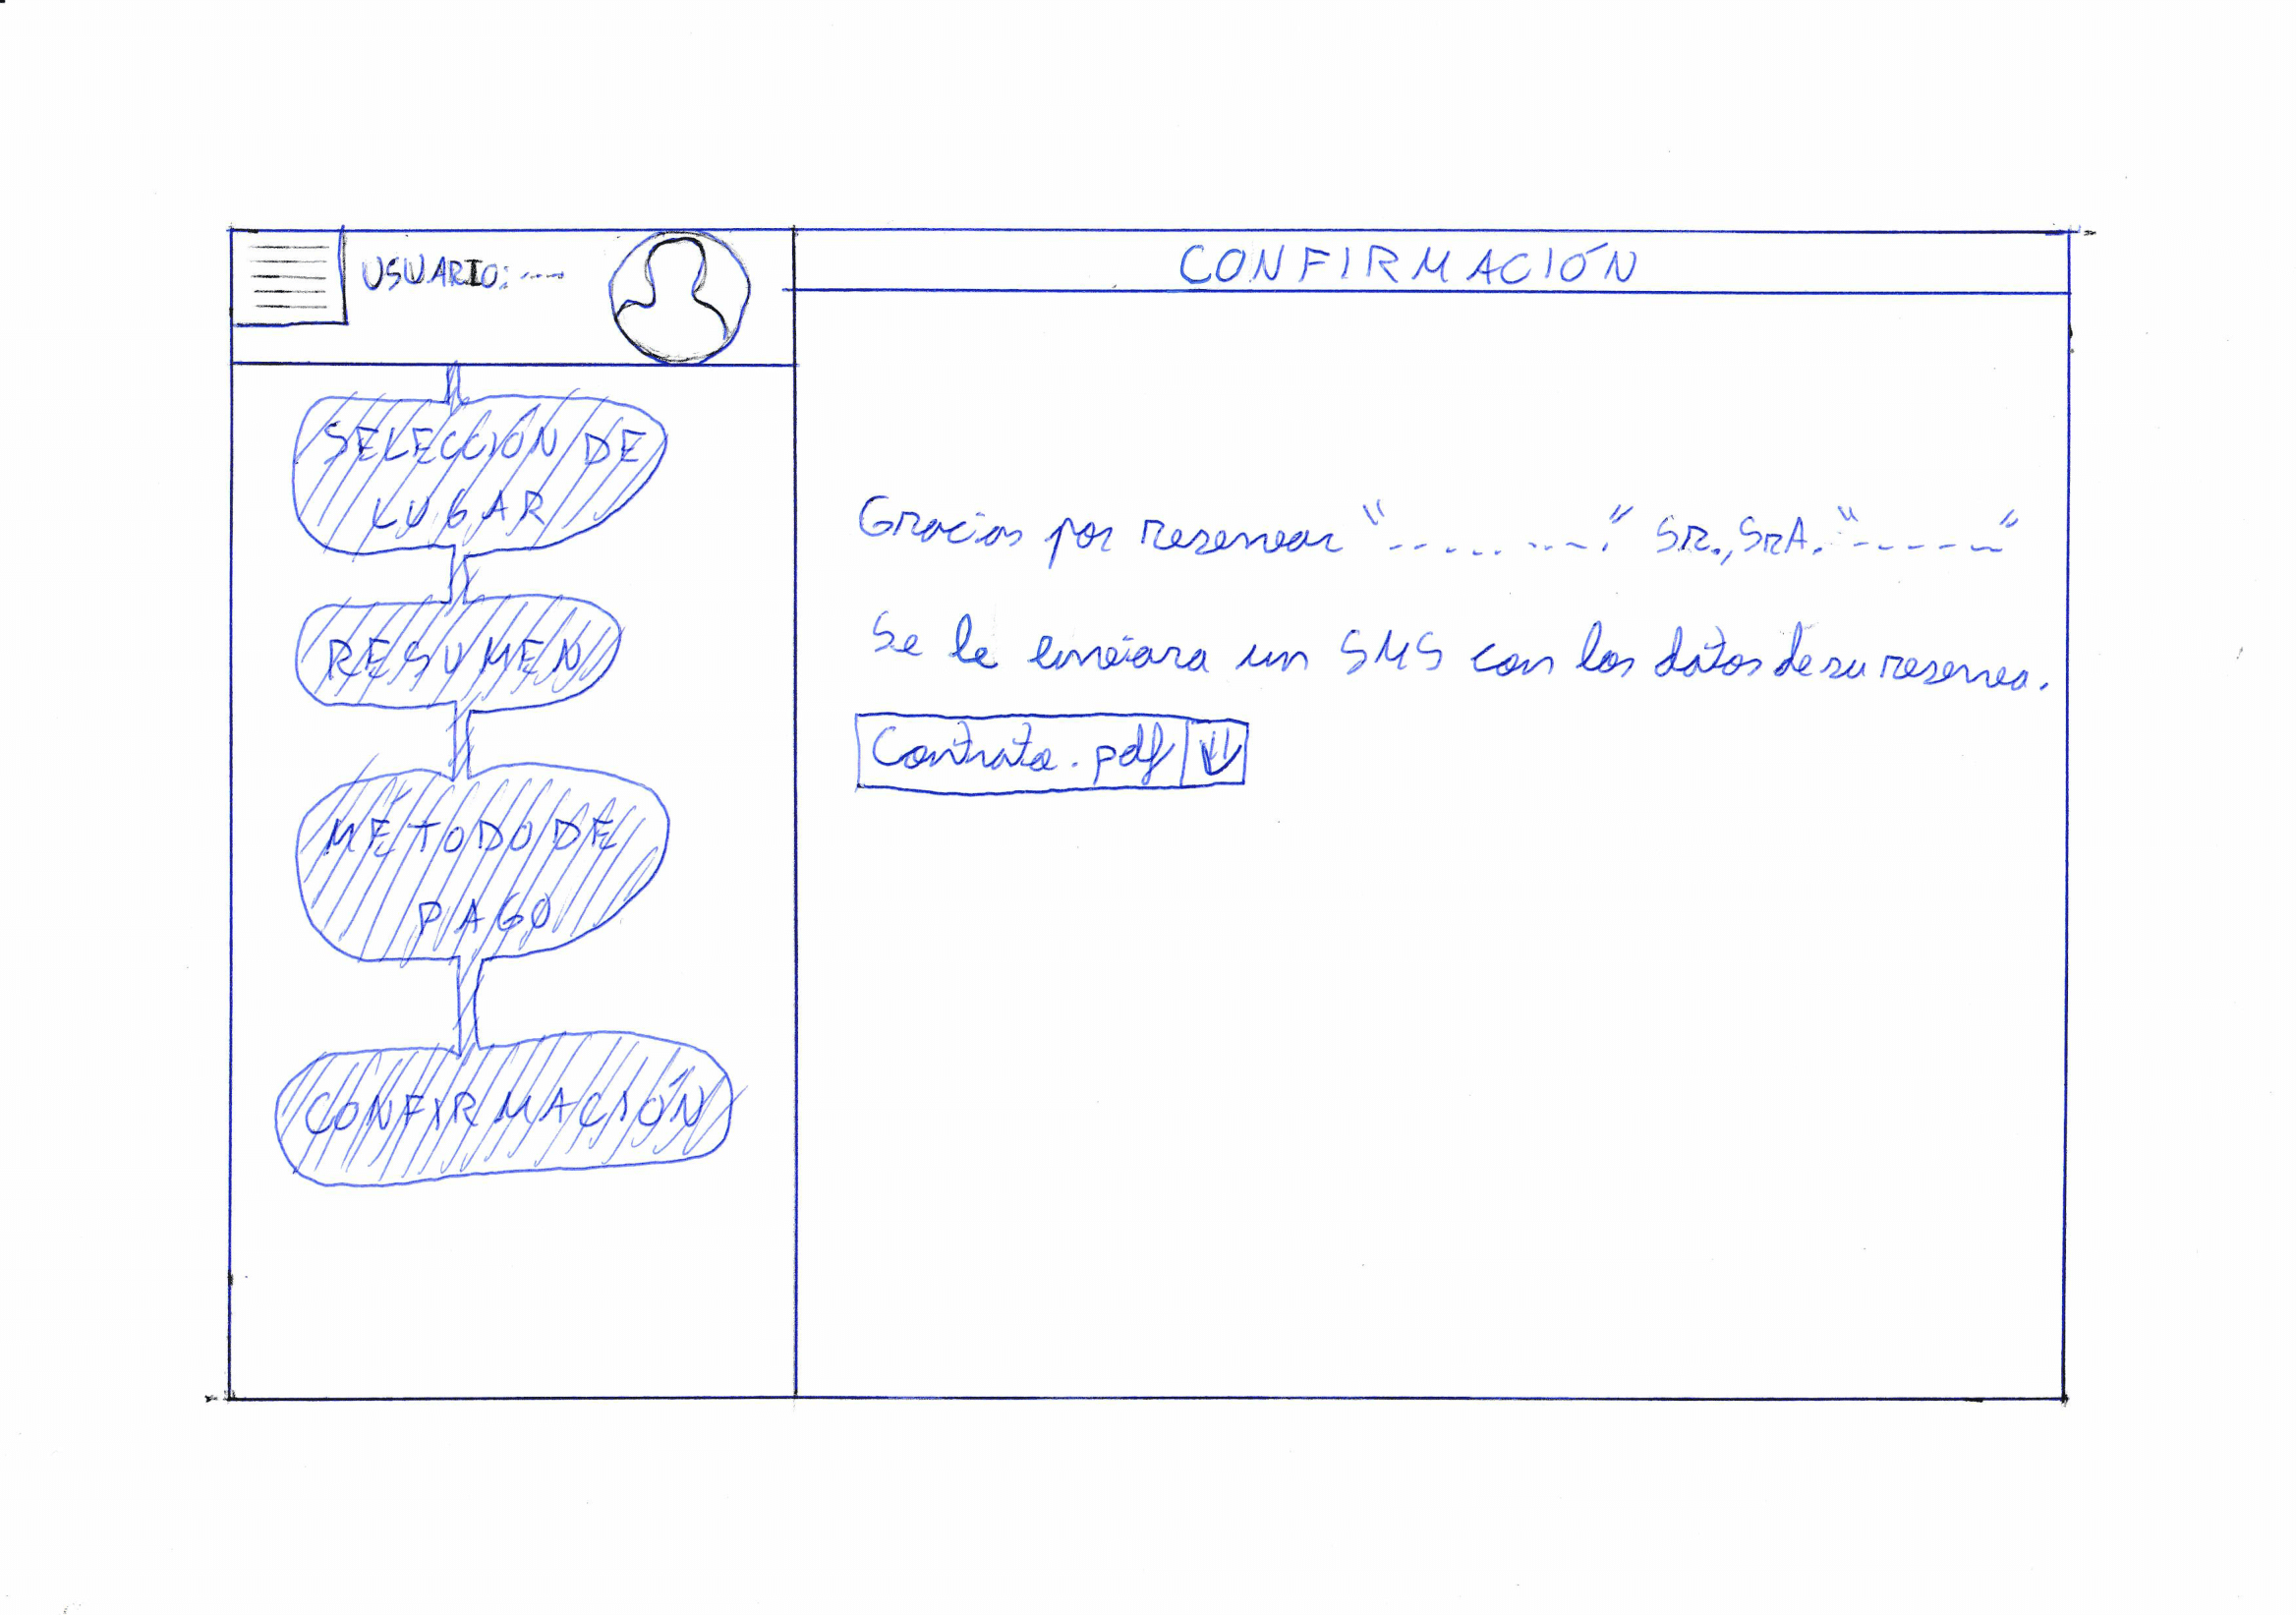 USUARIO: ----
CONFIRMACIÓN
SELECCIÓN DE
LUGAR
RESUMEN
MÉTODO DE
PAGO
CONFIRMACIÓN
Gracias por reservar "---------." SR., SRA. "-----"
Se le enviara un SMS con los datos de su reserva.
Contrato.pdf